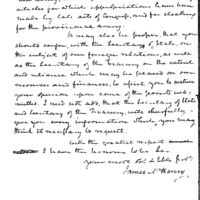 articles for which appropriations have been
made by late acts of Congress, and for clothing
for the provisional army.
It may also be proper, that you
should confer with the Secretary of State, on
the subject of our foreign relations, as well
as the Secretary of the Treasury on the extent
and reliance which may be placed on our
resources and finances, to assist you to mature
your opinion upon some of the points sub-
mitted. I need not add, that the Secretary of State
and Secretary of the Treasury, will chearfully
give you any information which you may
think it necessary to request.
With the greatest respect
I have the honor to be
your most Obt & Hble Servt.
James McHenry